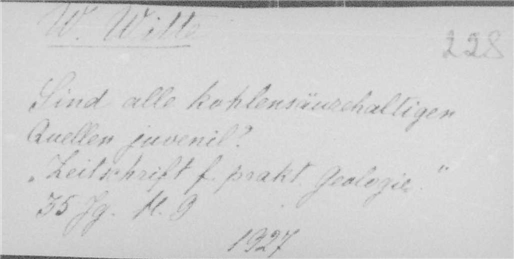 W. Witte
228
Sind alle kohlensäurehaltigen
Quellen juvenil?
„Zeitschrift f. prakt. Geologie."
35 Jg. H. 9
1927